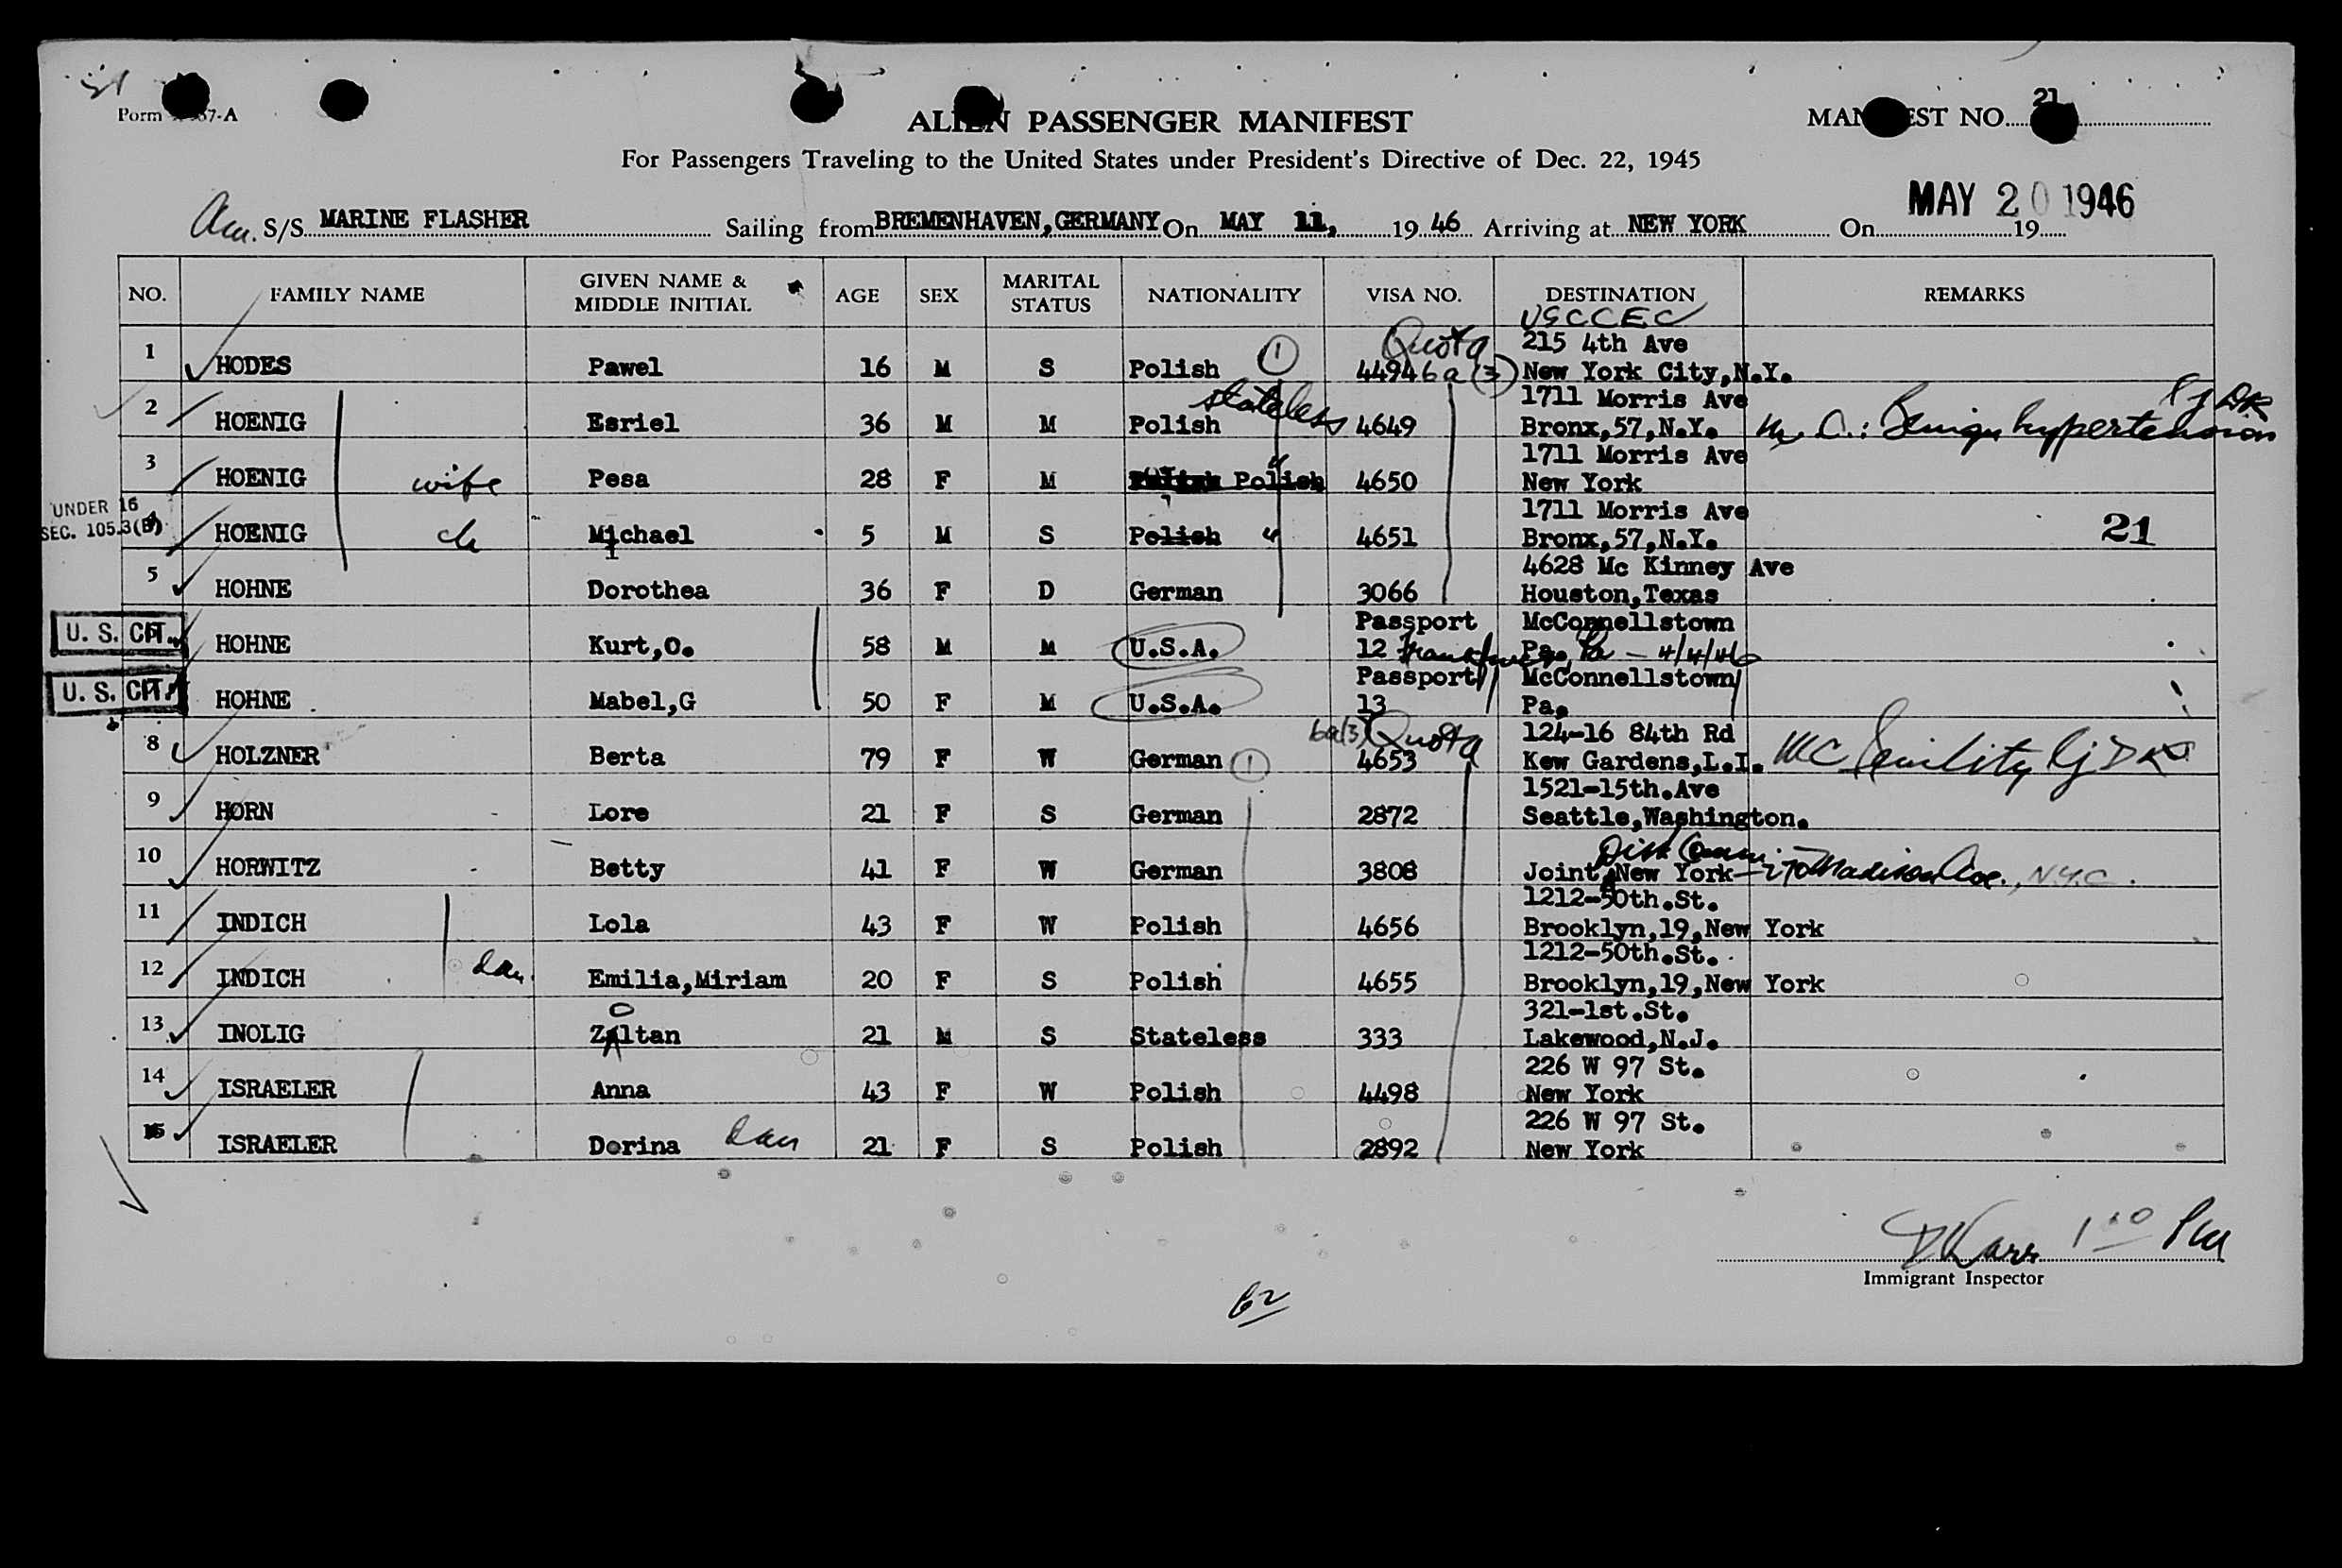 Form 7-A
ALIEN PASSENGER MANIFEST
MANIFEST NO. 21
For Passengers Traveling to the United States under President's Directive of Dec. 22, 1945
MAY 20 1946
Am. S/S MARINE FLASHER Sailing from BREMENHAVEN,GERMANY On MAY 11, 19 46 Arriving at NEW YORK On 19
NO. FAMILY NAME GIVEN NAME & MIDDLE INITIAL AGE SEX MARITAL STATUS NATIONALITY VISA NO. DESTINATION REMARKS
USCCEC
Quota 215 4th Ave
1 HODES Pawel 16 M S Polish 1 4494 6a(3) New York City,N.Y.
stateless 1711 Morris Ave
2 HOENIG Esriel 36 M M Polish 4649 Bronx,57,N.Y. M.C.: Benign hypertension
1711 Morris Ave
3 HOENIG wife Pesa 28 F M Polish " 4650 New York
UNDER 16
SEC. 105.3(B)
1711 Morris Ave
4 HOENIG ch Michael 5 M S Polish " 4651 Bronx,57,N.Y. 21
4628 Mc Kinney Ave
5 HOHNE Dorothea 36 F D German 3066 Houston,Texas
Passport McConnellstown
U. S. CIT. HOHNE Kurt,O. 58 M M U.S.A. 12 Frankfurt Pa. 4/4/46
Passport " McConnellstown
U. S. CIT. HOHNE Mabel,G 50 F M U.S.A. 13 Pa.
6a(3) Quota 124-16 84th Rd
8 HOLZNER Berta 79 F W German 1 4653 Kew Gardens,L.I. MC Senility
1521-15th.Ave
9 HORN Lore 21 F S German 2872 Seattle,Washington.
Dist Comm
10 HORWITZ Betty 41 F W German 3808 Joint New York-270 Madison Ave., N.Y.C.
1212-50th.St.
11 INDICH Lola 43 F W Polish 4656 Brooklyn,19,New York
1212-50th.St.
12 INDICH dau. Emilia,Miriam 20 F S Polish 4655 Brooklyn,19,New York
321-1st.St.
13 INOLIG Zoltan 21 M S Stateless 333 Lakewood,N.J.
226 W 97 St.
14 ISRAELER Anna 43 F W Polish 4498 New York
226 W 97 St.
15 ISRAELER Dorina dau 21 F S Polish 2892 New York
D Karr 1 10 PM
Immigrant Inspector
62